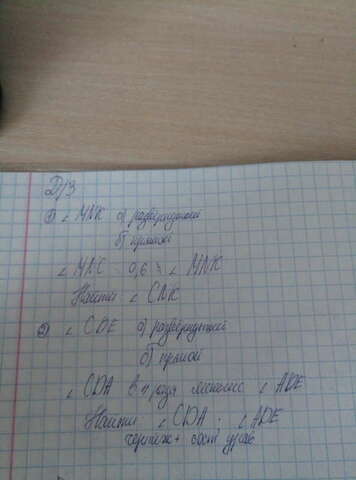 Д/З
① ∠ MNK а) развёрнутый
б) прямой
∠ MNC 0,6 ∠ MNK
Найти ∠ CNK
② ∠ CDE а) развёрнутый
б) прямой
∠ CDA в 4 раза меньше ∠ ADE
Найти ∠ CDA; ∠ ADE
чертёж +